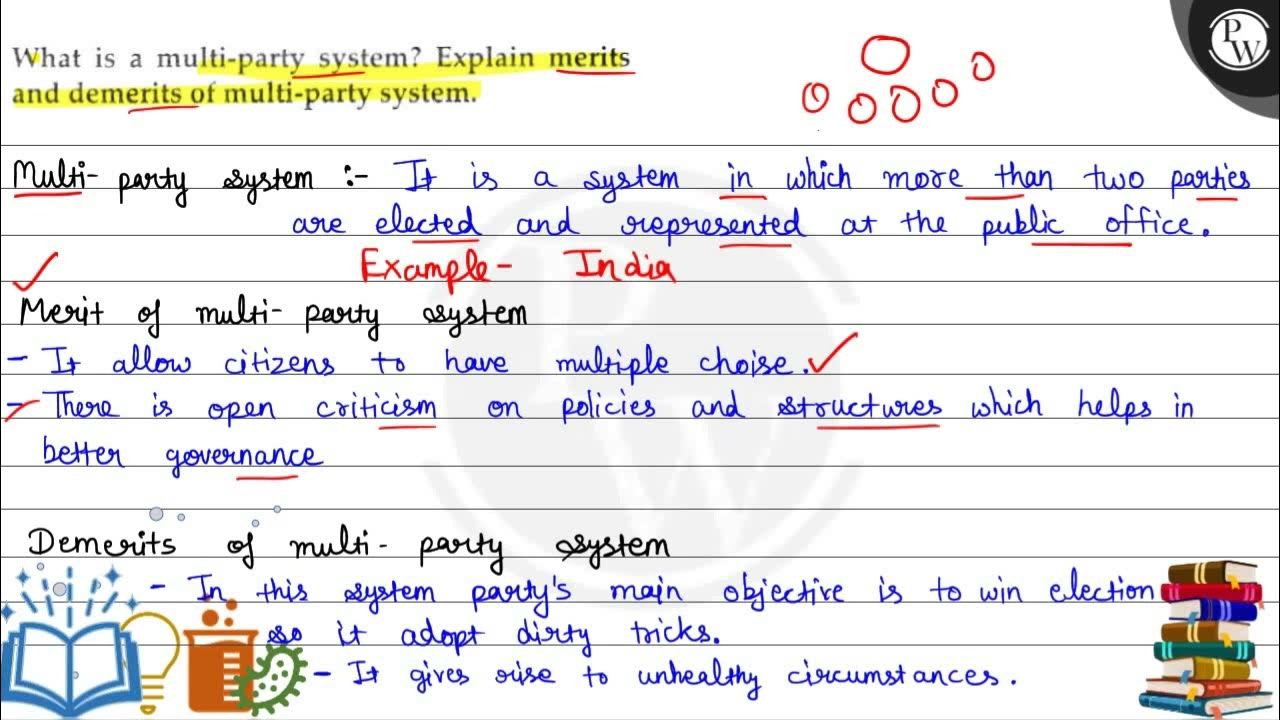 What is a multi-party system? Explain merits
and demerits of multi-party system.
PW
Multi- party system :- It is a system in which more than two parties
are elected and represented at the public office.
Example- India
Merit of multi- party system
- It allow citizens to have multiple choise.
- There is open criticism on policies and structures which helps in
better governance
Demerits of multi- party system
- In this system party's main objective is to win election
so it adopt dirty tricks.
- It gives rise to unhealthy circumstances.